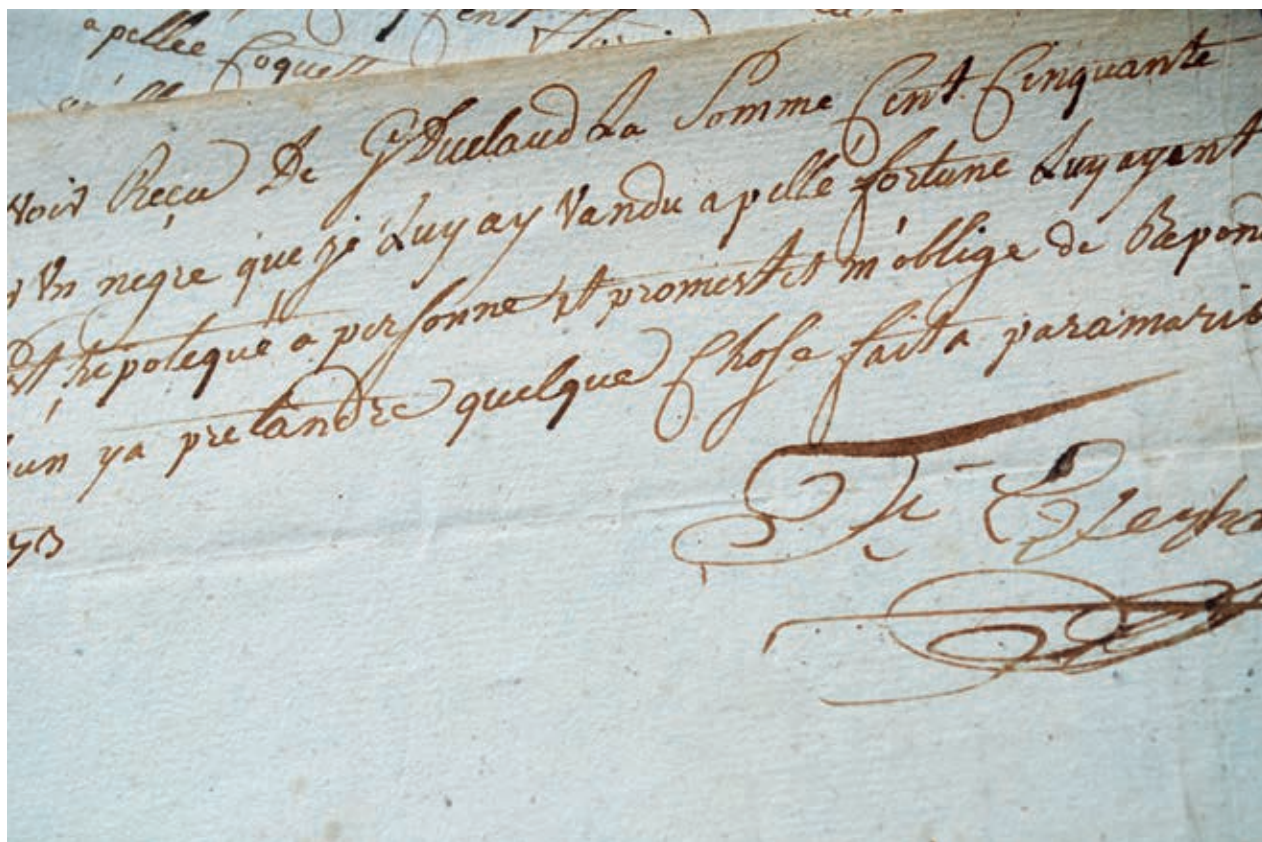 apellée Coquett
voir Reçu De G Duclaud La Somme Cent Cinquante
Un negre que je Luy ay Vandu apellé fortune Luy ayant
hipotequé a personne et promest et m'oblige de Repond
un ya pretandre quelque Chose fait a paramarib